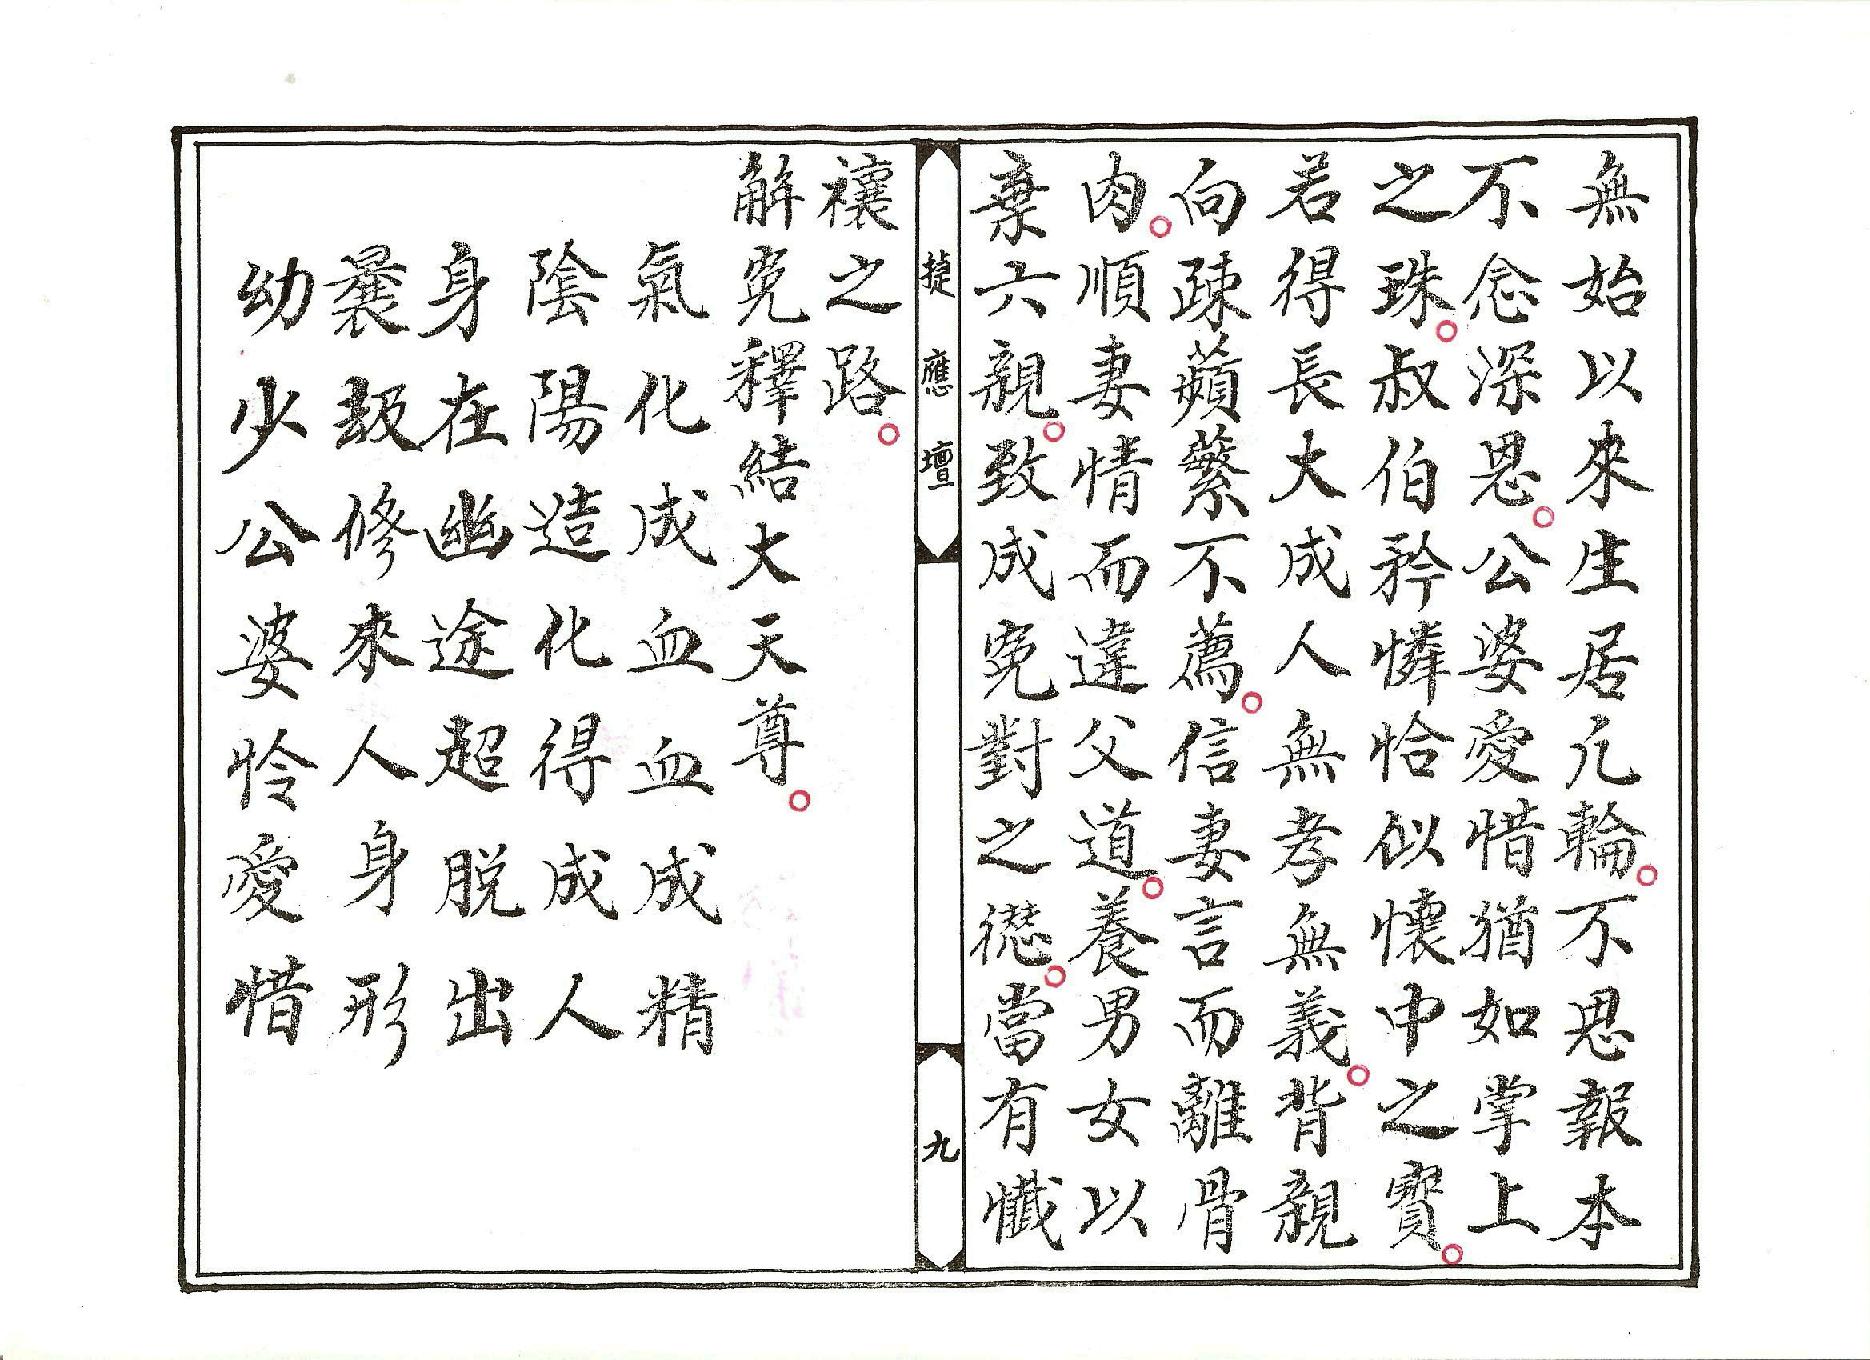 無始以來生居凢輪。不思報本
不念深恩。公婆愛惜猶如掌上
之珠。叔伯矜憐恰似懷中之寶。
若得長大成人無孝無義。背親
向疎蘋蘩不薦。信妻言而離骨
肉。順妻情而違父道。養男女以
棄六親。致成寃對之愆。當有懺
捷應壇
九
禳之路。
解寃釋結大天尊。
氣化成血血成精
陰陽造化得成人
身在幽途超脱出
曩劫修來人身形
幼少公婆怜愛惜